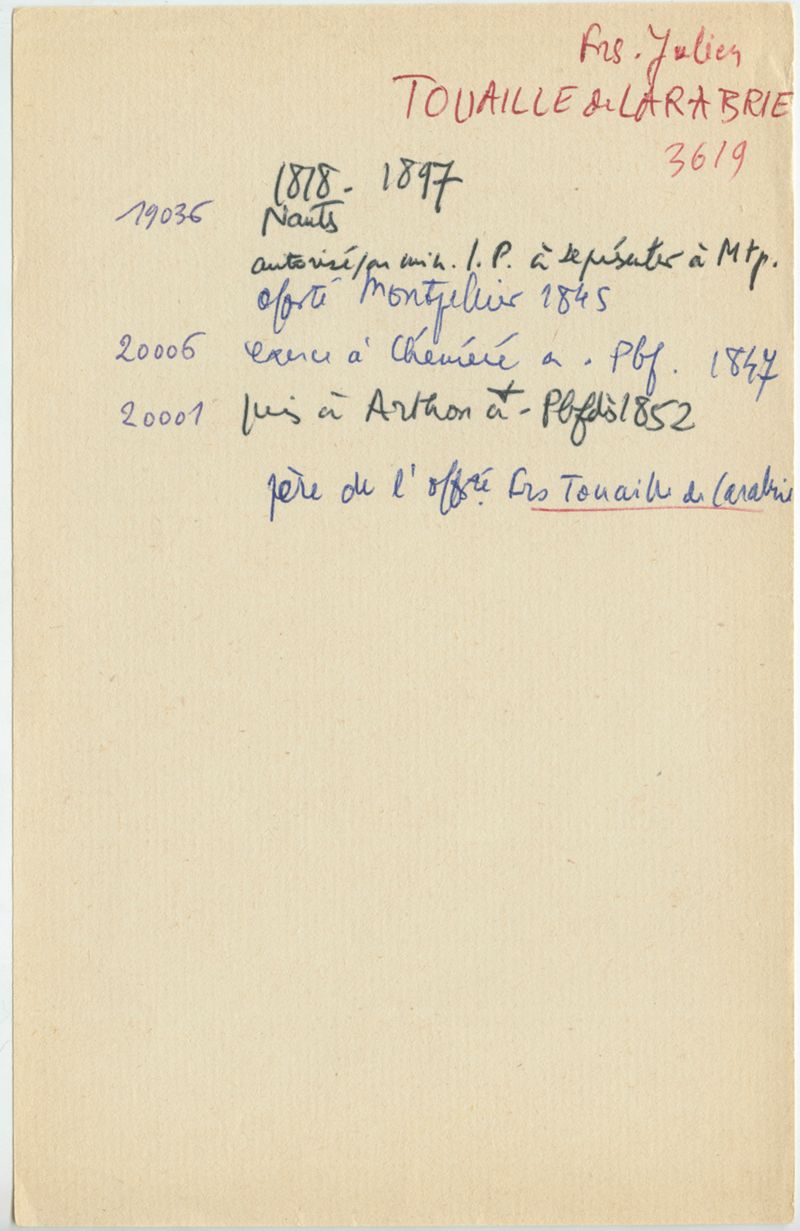 Frs. Julien
TOUAILLE de LARABRIE
3619
1818 - 1897
19036 Nants
autorisé par min. I.P. à se présenter à Mtp.
Montpellier 1845
20006 exerce à Chéméré Pbf. 1847
20001 puis à Arthon Pbf dès 1852
père de l'offré Frs Touaille de Larabrie